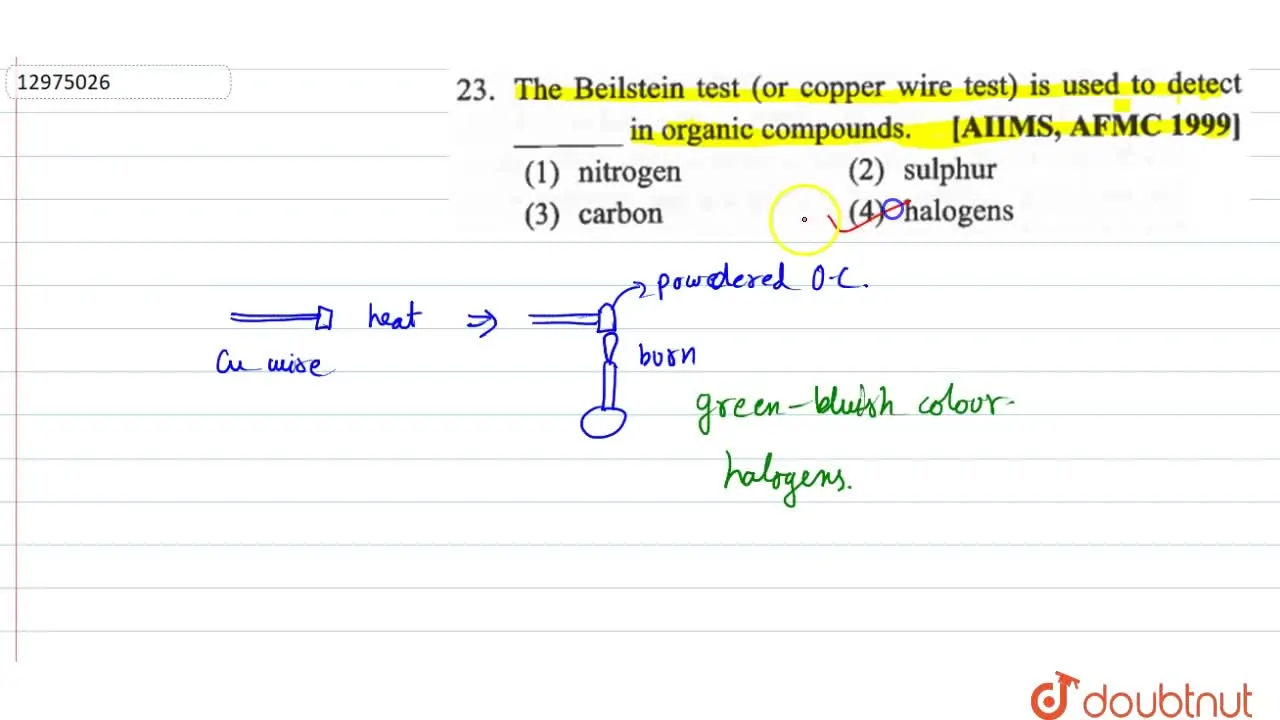 12975026
23. The Beilstein test (or copper wire test) is used to detect
_______ in organic compounds. [AIIMS, AFMC 1999]
(1) nitrogen (2) sulphur
(3) carbon (4) halogens
powdered O.C.
heat ⇒
Cu wire
burn
green-bluish colour.
halogens.
doubtnut